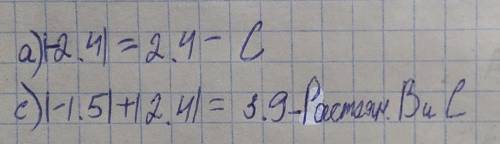 а)|-2.4| = 2.4 - C
с)|-1.5|+|2.4| = 3.9-Расстаян. В и С